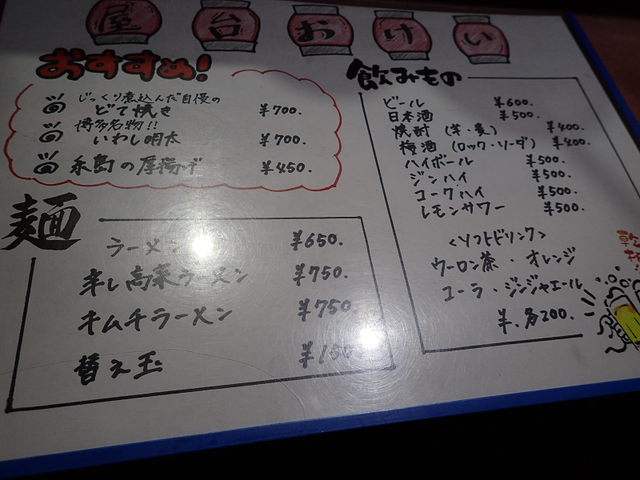 屋台おけい
おすすめ!
じっくり煮込んだ自慢の
どて焼き ¥700.
博多名物!!
いわし明太 ¥700.
の厚揚げ ¥450.
麺
ラーメン ¥650.
辛し高菜ラーメン ¥750.
キムチラーメン ¥750.
替え玉 ¥150
飲みもの
ビール ¥600.
日本酒 ¥500.
焼酎(芋・麦) ¥400.
梅酒(ロック・ソーダ) ¥400.
ハイボール ¥500.
ジンハイ ¥500.
コークハイ ¥500.
レモンサワー ¥500.
<ソフトドリンク>
ウーロン茶・オレンジ
コーラ・ジンジャエール
¥.各200.